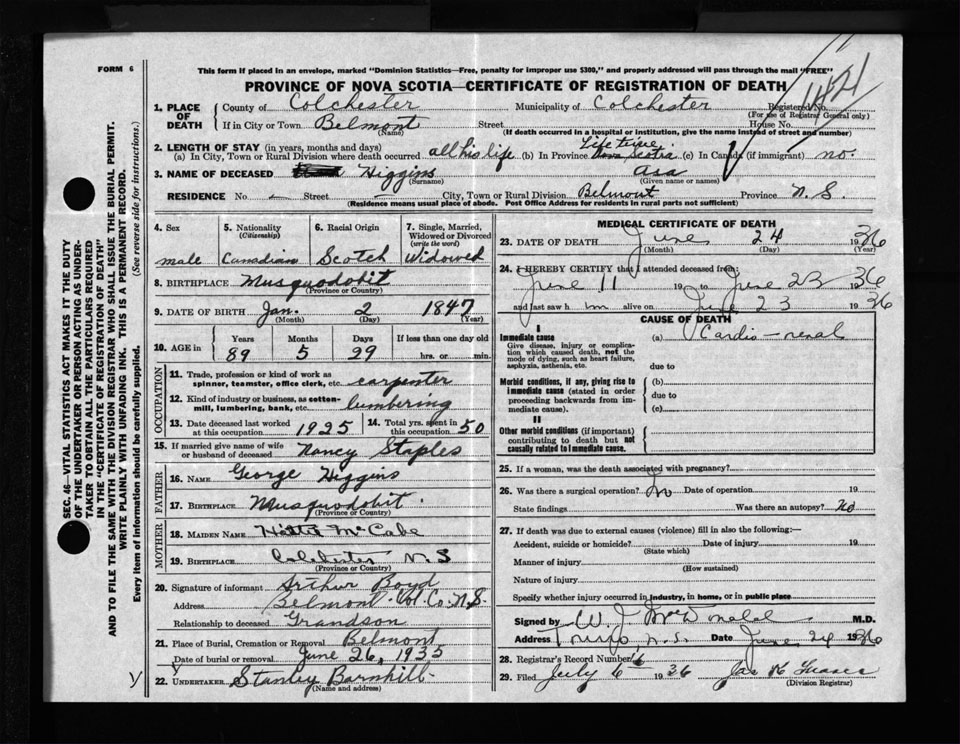 FORM 6
This form if placed in an envelope, marked "Dominion Statistics—Free, penalty for improper use $300," and properly addressed will pass through the mail "FREE"
PROVINCE OF NOVA SCOTIA—CERTIFICATE OF REGISTRATION OF DEATH
1. PLACE OF DEATH
County of Colchester Municipality of Colchester Registered No.
(For use of Registrar General only)
If in City or Town Belmont Street House No.
(Name) (If death occurred in a hospital or institution, give the name instead of street and number)
2. LENGTH OF STAY (in years, months and days)
(a) In City, Town or Rural Division where death occurred all his life (b) In Province Life time Nova Scotia (c) In Canada (if immigrant) no.
3. NAME OF DECEASED Higgins Asa
(Surname) (Given name or names)
RESIDENCE No. Street City, Town or Rural Division Belmont Province N. S.
(Residence means usual place of abode. Post Office Address for residents in rural parts not sufficient)
4. Sex
male
5. Nationality
(Citizenship)
Canadian
6. Racial Origin
Scotch
7. Single, Married, Widowed or Divorced
(write the word)
Widowed
8. BIRTHPLACE Musquodobit
(Province or Country)
9. DATE OF BIRTH Jan. 2 1847
(Month) (Day) (Year)
10. AGE in
Years Months Days If less than one day old
89 5 29 hrs. or min.
OCCUPATION
11. Trade, profession or kind of work as
spinner, teamster, office clerk, etc. carpenter
12. Kind of industry or business, as cotton-
mill, lumbering, bank, etc. lumbering
13. Date deceased last worked at this occupation 1925
14. Total yrs. spent in this occupation 50
15. If married give name of wife or husband of deceased Nancy Staples
FATHER
16. NAME George Higgins
17. BIRTHPLACE Musquodobit.
(Province or Country)
MOTHER
18. MAIDEN NAME McCabe
19. BIRTHPLACE Colchester N. S
(Province or Country)
20. Signature of informant Arthur Boyd
Address Belmont Col. Co. N. S.
Relationship to deceased Grandson
21. Place of Burial, Cremation or Removal Belmont
Date of burial or removal June 26, 1935
22. UNDERTAKER Stanley Barnhill
(Name and address)
MEDICAL CERTIFICATE OF DEATH
23. DATE OF DEATH June 24 1936
(Month) (Day) (Year)
24. I HEREBY CERTIFY that I attended deceased from:
June 11 19 to June 23 1936
and last saw him alive on June 23 1936
CAUSE OF DEATH
I
Immediate cause
Give disease, injury or complication which caused death, not the mode of dying, such as heart failure, asphyxia, asthenia, etc.
(a) Cardio-renal
due to
Morbid conditions, if any, giving rise to immediate cause (stated in order proceeding backwards from immediate cause).
(b)
due to
(c)
II
Other morbid conditions (if important) contributing to death but not causally related to immediate cause.
25. If a woman, was the death associated with pregnancy?
26. Was there a surgical operation? No Date of operation 19
State findings Was there an autopsy? No
27. If death was due to external causes (violence) fill in also the following:—
Accident, suicide or homicide? Date of injury 19
(State which)
Manner of injury
(How sustained)
Nature of injury
Specify whether injury occurred in industry, in home, or in public place
Signed by W. J. McDonald M.D.
Address Truro N.S. Date June 24 1936
28. Registrar's Record Number 16
29. Filed July 6 1936 Jas
(Division Registrar)
SEC. 46—VITAL STATISTICS ACT MAKES IT THE DUTY
OF THE UNDERTAKER OR PERSON ACTING AS UNDER-
TAKER TO OBTAIN ALL THE PARTICULARS REQUIRED
IN THE "CERTIFICATE OF REGISTRATION OF DEATH"
AND TO FILE THE SAME WITH THE DIVISION REGISTRAR WHO SHALL ISSUE THE BURIAL PERMIT.
WRITE PLAINLY WITH UNFADING INK. THIS IS A PERMANENT RECORD.
Every item of information should be carefully supplied. (See reverse side for instructions.)